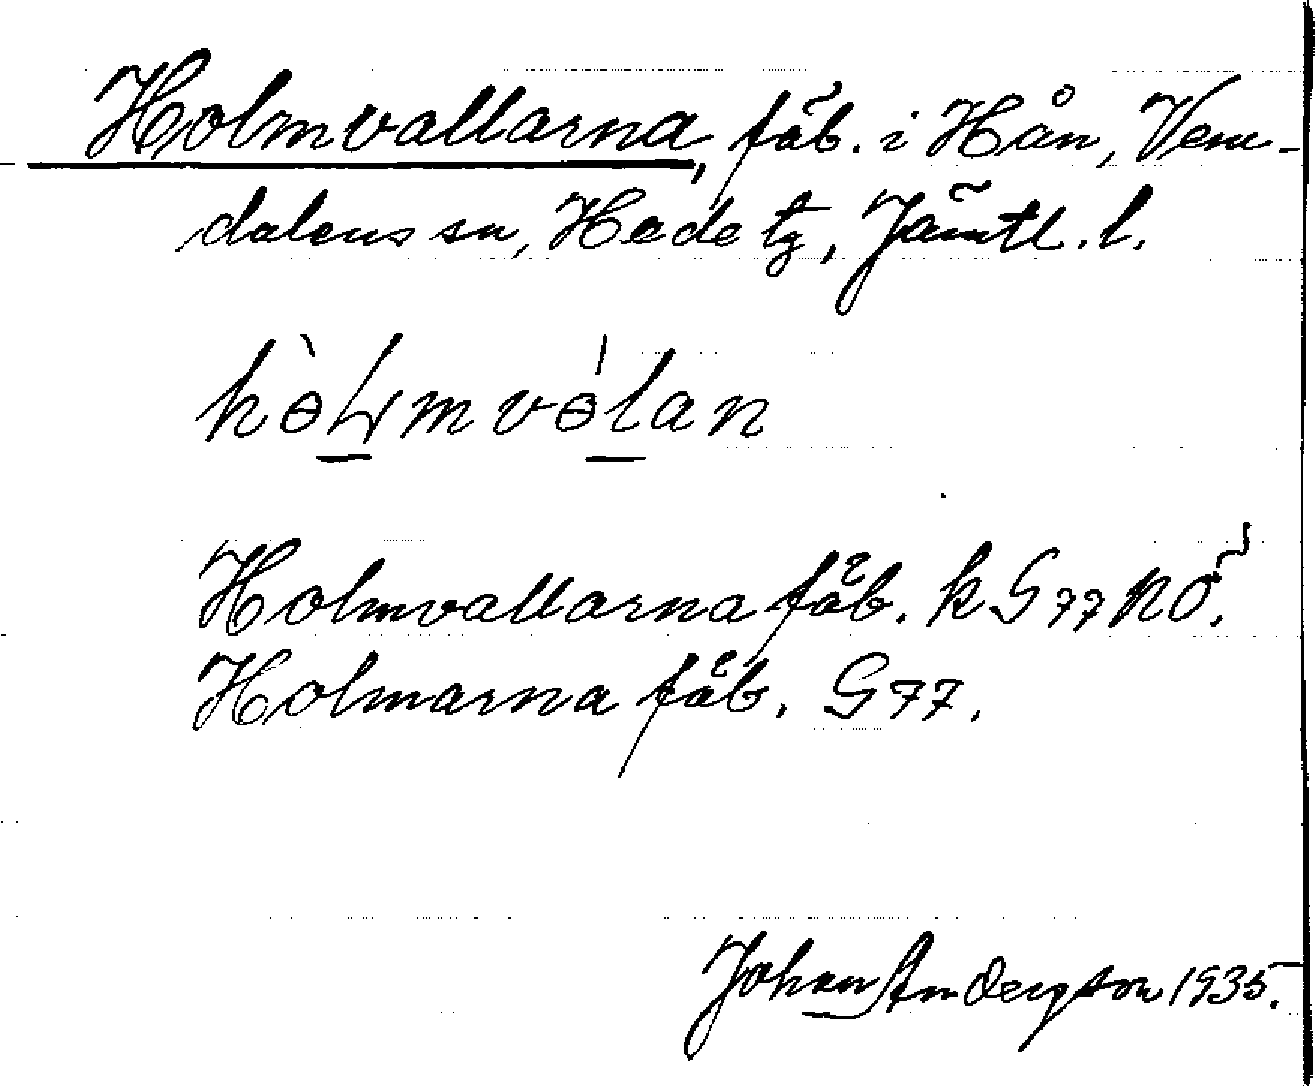 Holmvallarna, fäb. i Hån, Vem-
dalens sn, Hede tg, Jämtl. l.
Holmvallarna fäb. k G77 NÖ.
Holmarna fäb. G77.
Johan Anderson 1935.